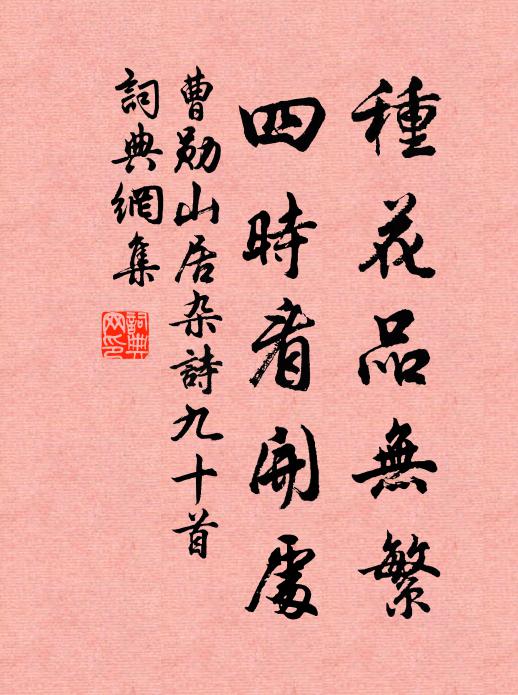 種花品無繁
四時看開處
曹勛山居杂詩九十首
詞典網集
詞典網印